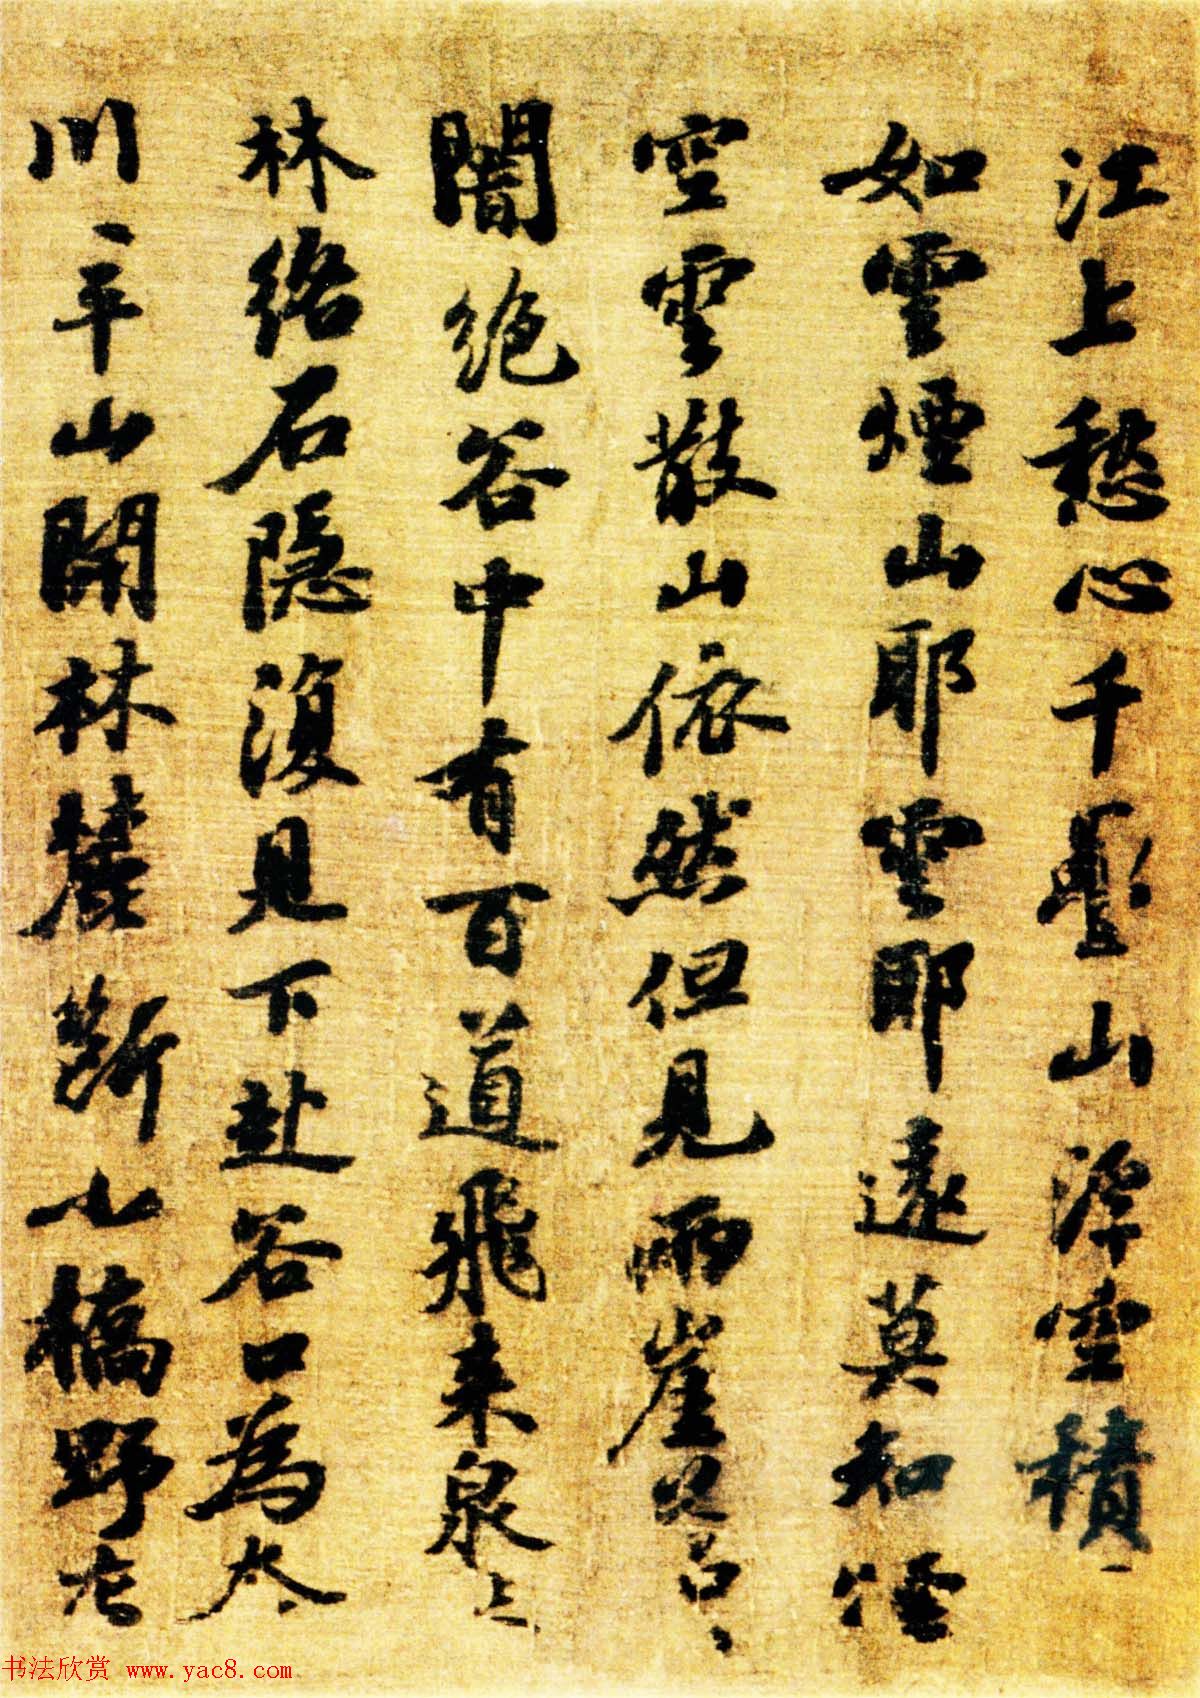 江上愁心千疊山浮空積
如雲煙山耶雲耶遠莫知煙
空雲散山依然但見兩崖蒼
闇絕谷中有百道飛來泉
林絡石隱復見下赴谷口為
川平山開林麓斷小橋野
书法欣赏 www.yac8.com